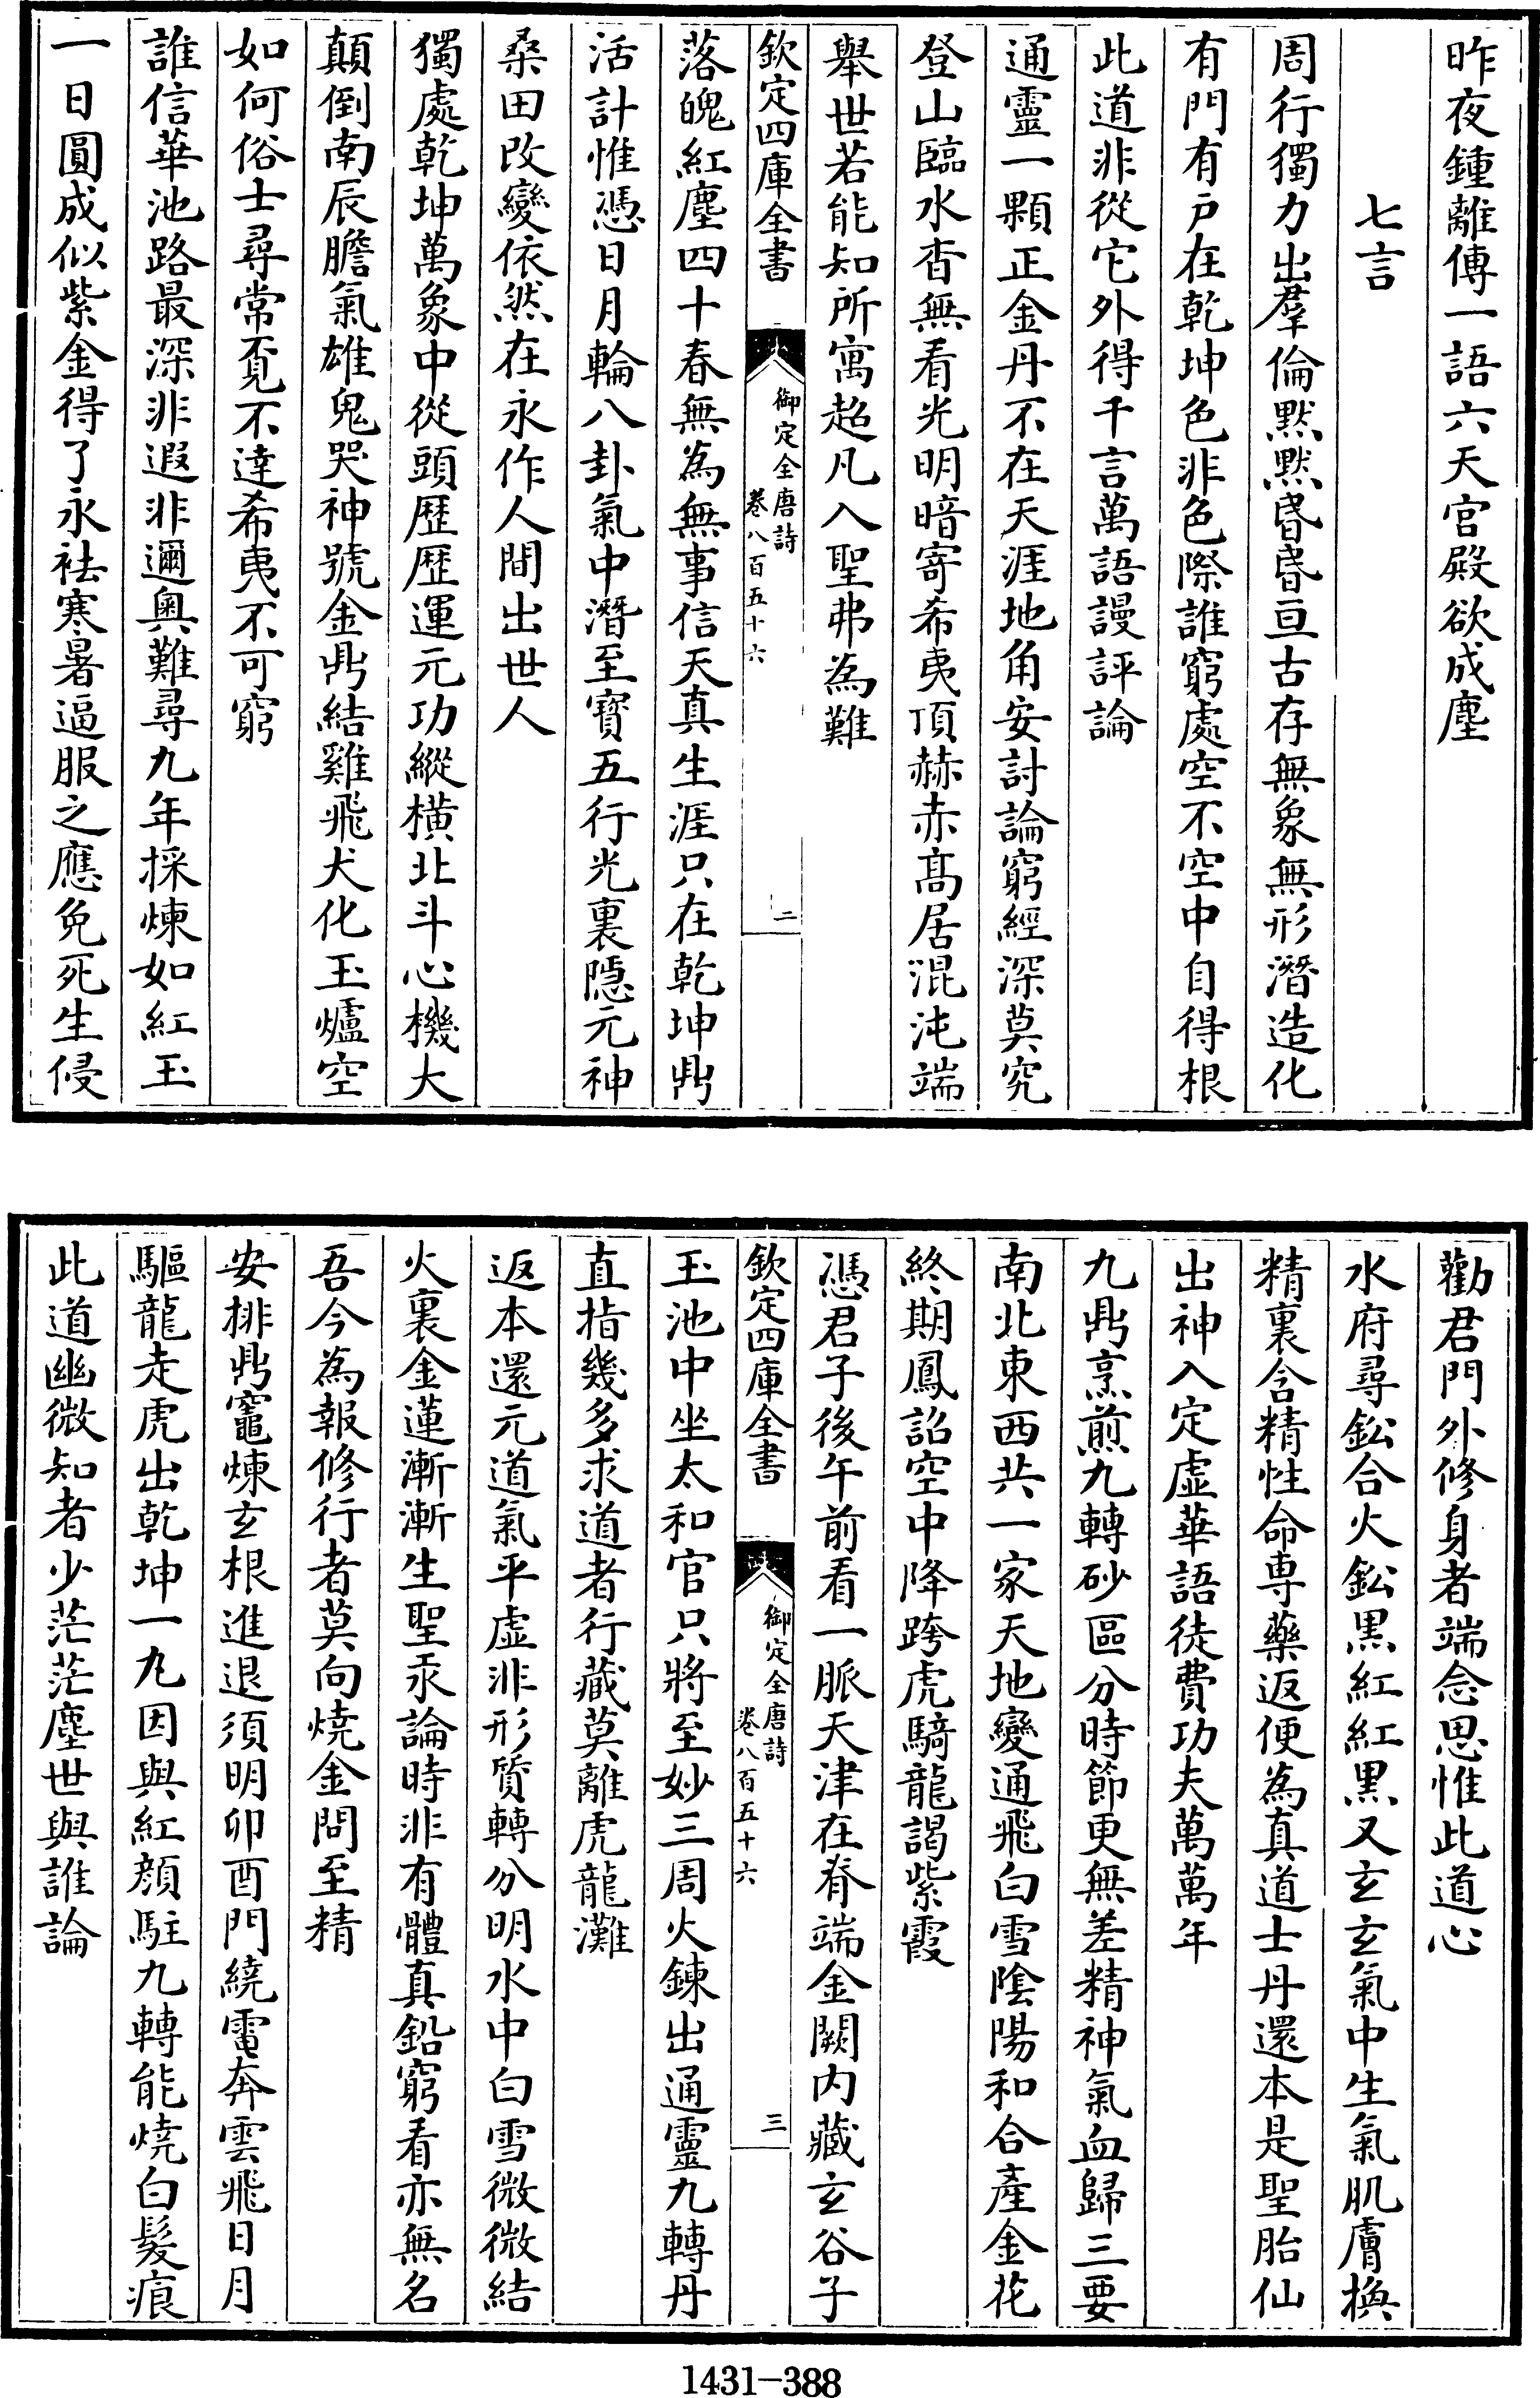 昨夜鍾離傳一語六天宫殿欲成塵
七言
周行獨力出羣倫黙黙昏昏亘古存無象無形潛造化
有門有戸在乾坤色非色際誰窮處空不空中自得根
此道非從它外得千言萬語謾評論
通靈一顆正金丹不在天涯地角安討論窮經深莫究
登山臨水杳無看光明暗寄希夷頂赫赤髙居混沌端
舉世若能知所寓超凡入聖弗為難
欽定四庫全書
御定全唐詩
卷八百五十六
二
落魄紅塵四十春無為無事信天真生涯只在乾坤鼎
活計惟憑日月輪八卦氣中潛至寳五行光裏隱元神
桑田改變依然在永作人間出世人
獨處乾坤萬象中從頭歴歴運元功縱橫北斗心機大
顛倒南辰膽氣雄鬼哭神號金鼎結雞飛犬化玉爐空
如何俗士尋常覓不達希夷不可窮
誰信華池路最深非遐非邇奥難尋九年採煉如紅玉
一日圓成似紫金得了永袪寒暑逼服之應免死生侵
勸君門外修身者端念思惟此道心
水府尋鈆合火鈆黒紅紅黒又玄玄氣中生氣肌膚換
精裏含精性命専藥返便為真道士丹還本是聖胎仙
出神入定虛華語徒費功夫萬萬年
九鼎烹煎九轉砂區分時節更無差精神氣血歸三要
南北東西共一家天地變通飛白雪陰陽和合產金花
終期鳳詔空中降跨虎騎龍謁紫霞
憑君子後午前看一脈天津在脊端金闕内藏玄谷子
欽定四庫全書
御定全唐詩
卷八百五十六
三
玉池中坐太和官只將至妙三周火鍊出通靈九轉丹
直指幾多求道者行藏莫離虎龍灘
返本還元道氣平虛非形質轉分明水中白雪微微結
火裏金蓮漸漸生聖汞論時非有體真鉛窮看亦無名
吾今為報修行者莫向燒金問至精
安排鼎竈煉玄根進退須明卯酉門繞電奔雲飛日月
驅龍走虎出乾坤一丸因與紅顔駐九轉能燒白髪痕
此道幽微知者少茫茫塵世與誰論
1431-388